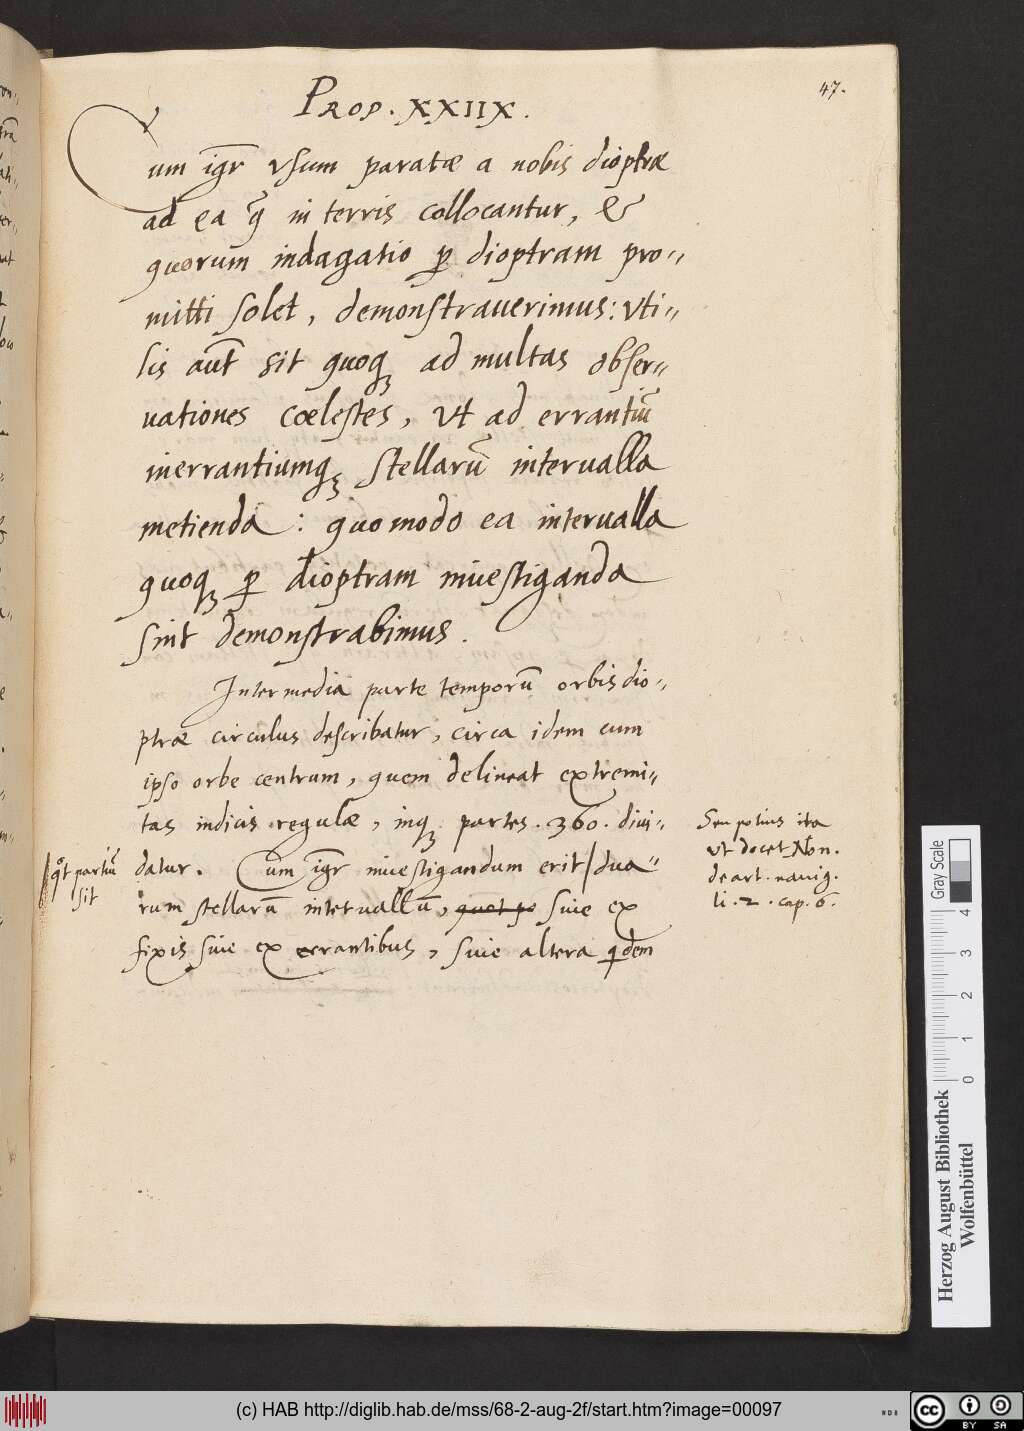 47.
Prop. XXIIX.
Cum igr̃ vsum paratæ a nobis dioptræ
ad ea q̃ in terris collocantur, &
quorum indagatio ꝑ dioptram pro-
mitti solet, demonstrauerimus: vti-
lis aut̃ sit quoqꝫ ad multas obser-
uationes cœlestes, vt ad errantiũ
inerrantiumqꝫ stellarũ interualla
metienda: quomodo ea interualla
quoqꝫ ꝑ dioptram inuestiganda
sint demonstrabimus.
Intermedia parte temporũ orbis dio-
ptræ circulus describatur, circa idem cum
ipso orbe centrum, quem delineat extremi-
tas indicis regulæ, inqꝫ partes .360. diui-
datur. Cum igr̃ inuestigandum erit | dua-
rum stellarũ interuallũ, siue ex
fixis siue ex errantibus, siue altera qdem
| qot partiũ
sit
Seu potius ita
vt docet Non.
de art. nauig.
li. 2. cap. 6.
Gray Scale
0 1 2 3 4
Herzog August Bibliothek
Wolfenbüttel
(c) HAB http://diglib.hab.de/mss/68-2-aug-2f/start.htm?image=00097
cc BY SA